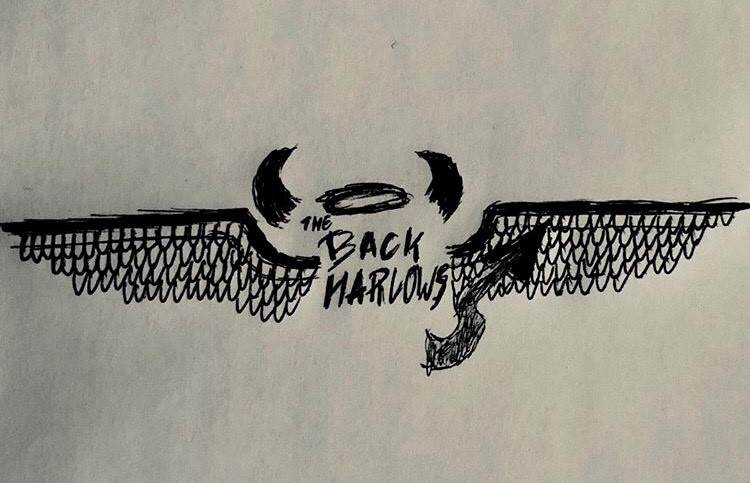 THE
BACK
HARLOWS